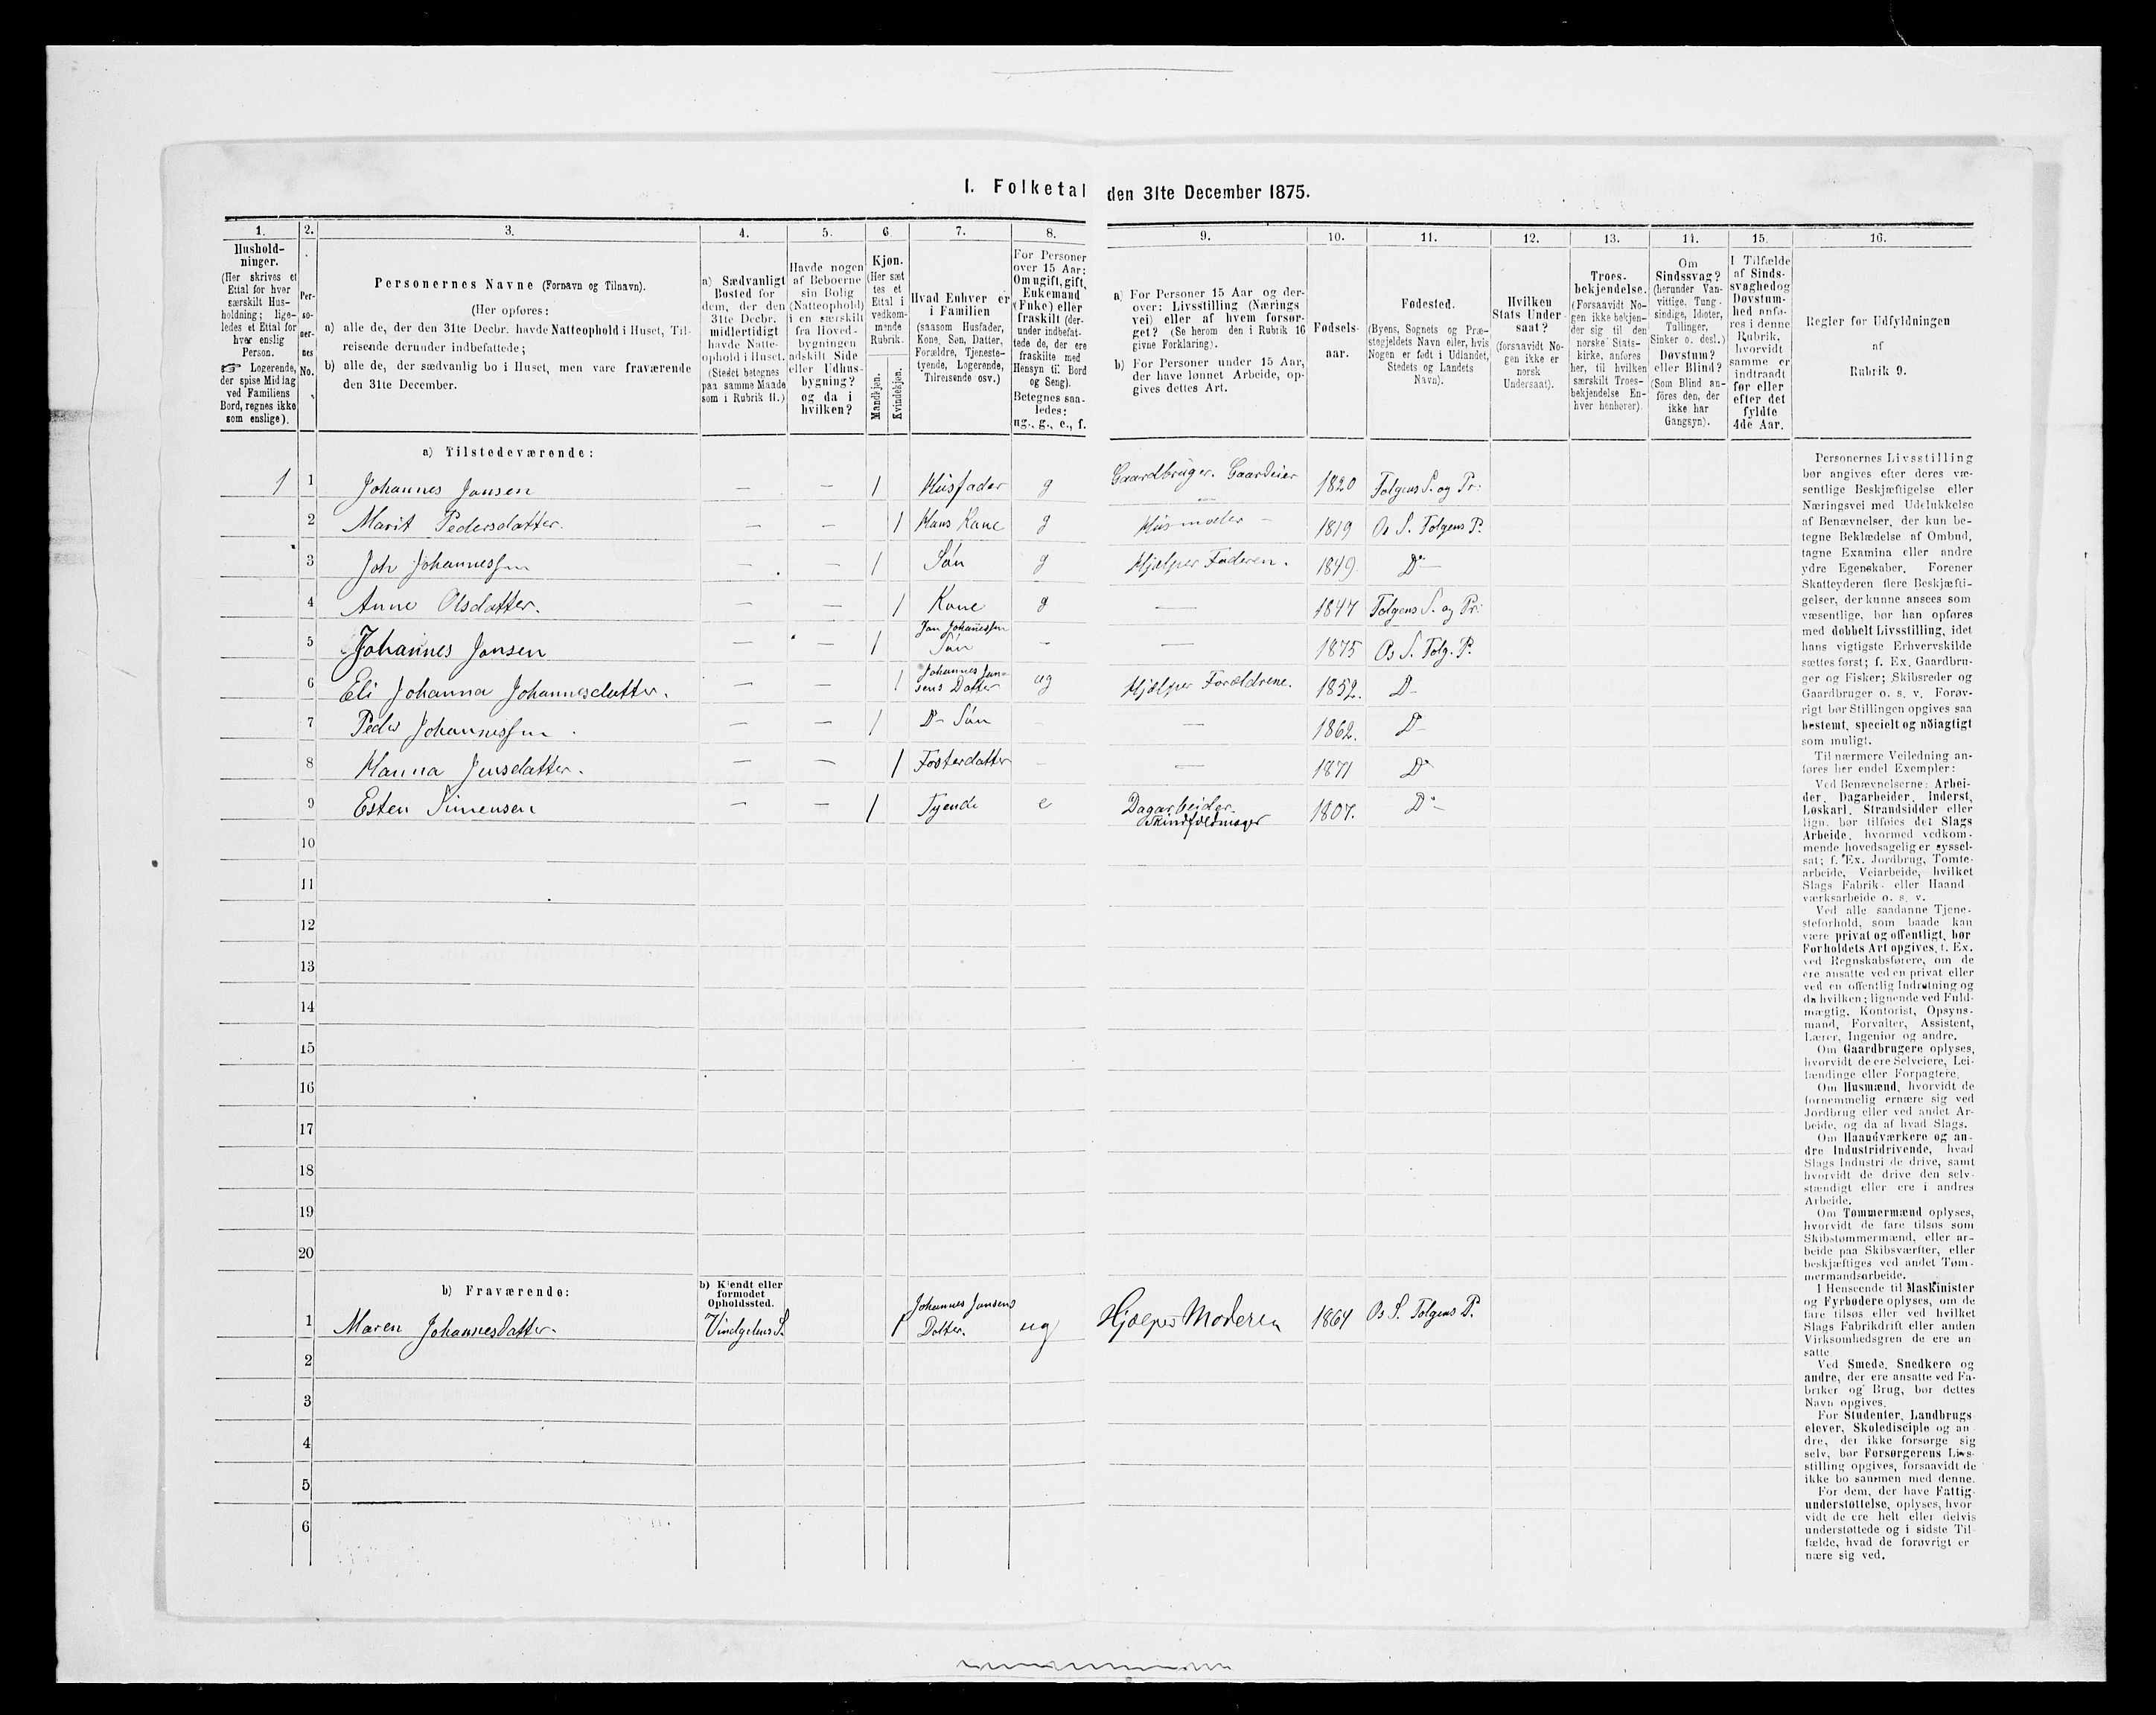 I. Folketal den 31te December 1875.
1. 2. 3. 4. 5. 6. 7. 8. 9. 10. 11. 12. 13. 14. 15. 16.
Hushold-
ninger.
(Her skrives et
Ettal for hver
særskilt Hus-
holdning; lige-
ledes et Ettal for
hver enslig
Person.
☞ Logerende,
der spise Middag
ved Familiens
Bord, regnes ikke
som enslige).
Per-
so-
ner-
nes
No.
Personernes Navne (Fornavn og Tilnavn).
(Her opføres:
a) alle de, der den 31te Decbr. havde Natteophold i Huset, Til-
reisende derunder indbefattede;
b) alle de, der sædvanlig bo i Huset, men vare fraværende
den 31te December.
a) Sædvanligt
Bosted for
dem, der den
31te Decbr.
midlertidigt
havde Natte-
ophold i Huset.
(Stedet betegnes
paa samme Maade
som i Rubrik 11.)
Havde nogen
af Beboerne
sin Bolig
(Natteophold)
i en særskilt
fra Hoved-
bygningen
adskilt Side
eller Udhus-
bygning?
og da i
hvilken?
Kjøn.
(Her sæt
tes et
Ettal i
vedkom-
mende
Rubrik.
Mandkjøn.
Kvindekjøn.
Hvad Enhver er
i Familien
(saasom Husfader,
Kone, Søn, Datter,
Forældre, Tjeneste-
tyende, Logerende,
Tilreisende osv.)
For Personer
over 15 Aar:
Om ugift, gift,
Enkemand
(Enke) eller
fraskilt (der-
under indbefat-
tede de, der ere
fraskilte med
Hensyn til Bord
og Seng).
Betegnes saa-
ledes:
ug., g., e., f.
a) For Personer 15 Aar og der-
over: Livsstilling (Nærings
vei) eller af hvem forsør-
get? (Se herom den i Rubrik 16
givne Forklaring).
b) For Personer under 15 Aar,
der have lønnet Arbeide, op-
gives dettes Art.
Fødsels-
aar.
Fødested.
(Byens, Sognets og Præ-
stegjeldets Navn eller, hvis
Nogen er født i Udlandet,
Stedets og Landets
Navn).
Hvilken
Stats Under-
saat?
(forsaavidt No-
gen ikke er
norsk
Undersaat).
Troes-
bekjendelse.
(Forsaavidt No-
gen ikke bekjen-
der sig til den
norske Stats-
kirke, anføres
her, til hvilken
særskilt Troes-
bekjendelse En-
hver henhører).
Om
Sindssvag?
(herunder Van-
vittige, Tung-
sindige, Idioter,
Tullinger,
Sinker o. desl.)
Døvstum?
eller Blind?
(Som Blind an-
føres den, der
ikke har
Gangsyn).
I Tilfælde
af Sinds-
svaghed og
Døvstum-
hed anfø-
res i denne
Rubrik,
hvorvidt
samme er
indtraadt
før eller
efter det
fyldte
4de Aar.
Regler for Udfyldningen
af
Rubrik 9.
a) Tilstedeværende:
1 1 Johannes Jonsen — — 1 Husfader g Gaardbruger. Gaardeier 1820 Tolgens S. og Pr:
2 Marit Pedersdatter. — — 1 Hans Kone g Husmoder – 1819 Os S. Tolgens P.
3 Joh Johannessen — — 1 Søn g Hjælper Faderen. 1849 Do
4 Anne Olsdatter. — — 1 Kone g — 1847 Tolgens S. og Pr:
5 Johannes Jonsen — — 1 Jon Johannessen
Søn – — 1875 Os S. Tolg. P.
6 Eli Johanna Johannesdatter. — — 1 Johannes Jon-
sens Datter ug Hjælper Forældrene. 1852. D–
7 Peder Johannessen — — 1 D– Søn – — 1862. D–
8 Hanna Jensdatter. — — 1 Fosterdatter – — 1871 Do
9 Esten Simensen — — 1 Tyende e Dagarbeider.
Skindfeldmager 1807. Do
10
11
12
13
14
15
16
17
18
19
20
b) Fraværende:
b) Kjendt eller
formodet
Opholdssted.
1 Maren Johannesdatter. Vindgelens S. 1 Johannes Jonsens
Datter. ug Hjælper Moderen 1864 Os S. Tolgens P.
2
3
4
5
6
Personernes Livsstilling
bør angives efter deres væ-
sentlige Beskjæftigelse eller
Næringsvei med Udelukkelse
af Benævnelser, der kun be-
tegne Beklædelse af Ombud,
tagne Examina eller andre
ydre Egenskaber. Forener
Skatteyderen flere Beskjæfti-
gelser, der kunne ansees som
væsentlige, bør han opføres
med dobbelt Livsstilling, idet
hans vigtigste Erhvervskilde
sættes først; f. Ex. Gaardbru-
ger og Fisker; Skibsreder og
Gaardbruger o. s. v. Forøv-
rigt bør Stillingen opgives saa
bestemt, specielt og nøiagtigt
som muligt.
Til nærmere Veiledning an-
føres her endel Exempler:
Ved Benævnelserne: Arbei-
der, Dagarbeider, Inderst,
Løskarl, Strandsidder eller
lign. bør tilføies det Slags
Arbeide, hvormed vedkom-
mende hovedsagelig er syssel-
sat; f. Ex. Jordbrug, Tomte-
arbeide, Veiarbeide, hvilket
Slags Fabrik- eller Haand
værksarbeide o. s. v.
Ved alle saadanne Tjene-
steforhold, som baade kan
være privat og offentligt, bør
Forholdets Art opgives, f. Ex.
ved Regnskabsførere, om de
ere ansatte ved en privat eller
ved en offentlig Indretning og
da hvilken; lignende ved Fuld-
mægtig, Kontorist, Opsyns-
mand, Forvalter, Assistent,
Lærer, Ingeniør og andre.
Om Gaardbrugere oplyses,
hvorvidt de ere Selveiere, Lei-
lændinge eller Forpagtere.
Om Husmænd, hvorvidt de
fornemmelig ernære sig ved
Jordbrug eller ved andet Ar-
beide, og da af hvad Slags.
Om Haandværkere og an-
dre Industridrivende, hvad
Slags Industri de drive, samt
hvorvidt de drive den selv-
stændigt eller ere i andres
Arbeide.
Om Tømmermænd oplyses,
hvorvidt de fare tilsøs som
Skibstømmermænd, eller ar-
beide paa Skibsværfter, eller
beskjæftiges ved andet Tøm-
mermandsarbeide.
I Henseende til Maskinister
og Fyrbødere oplyses, om de
fare tilsøs eller ved hvilket
Slags Fabrikdrift eller anden
Virksomhedsgren de ere an-
satte.
Ved Smede, Snedkere og
andre, der ere ansatte ved Fa-
briker og Brug, bør dettes
Navn opgives.
For Studenter, Landbrugs
elever, Skoledisciple og an-
dre, der ikke forsørge sig
selv, bør Forsørgerens Livs-
stilling opgives, forsaavidt de
ikke bo sammen med denne.
For dem, der have Fattig-
understøttelse, oplyses, hvor
vidt de ere helt eller delvis
understøttede og i sidste Til-
fælde, hvad de forøvrigt er
nære sig ved.